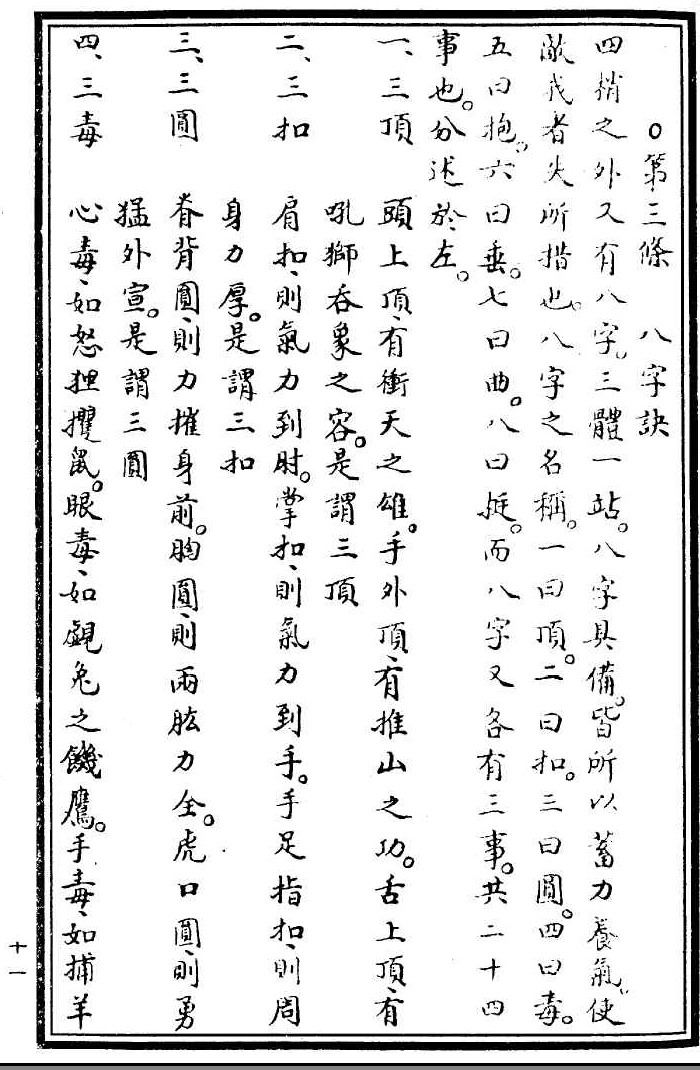 ○第三條　八字訣
四梢之外又有八字。三體一站。八字具備。皆所以蓄力養氣。使
敵我者失所措也。八字之名稱。一曰頂。二曰扣。三曰圓。四曰毒。
五曰抱。六曰垂。七曰曲。八曰挺。而八字又各有三事。共二十四
事也。分述於左。
一、三頂　頭上頂、有衝天之雄。手外頂、有推山之功。舌上頂、有
吼獅吞象之容。是謂三頂
二、三扣　肩扣、則氣力到肘。掌扣、則氣力到手。手足指扣、則周
身力厚。是謂三扣
三、三圓　脊背圓、則力摧身前。胸圓、則兩肱力全。虎口圓、則勇
猛外宣。是謂三圓
四、三毒　心毒、如怒狸攫鼠。眼毒、如覷兔之饑鷹。手毒、如捕羊
十一